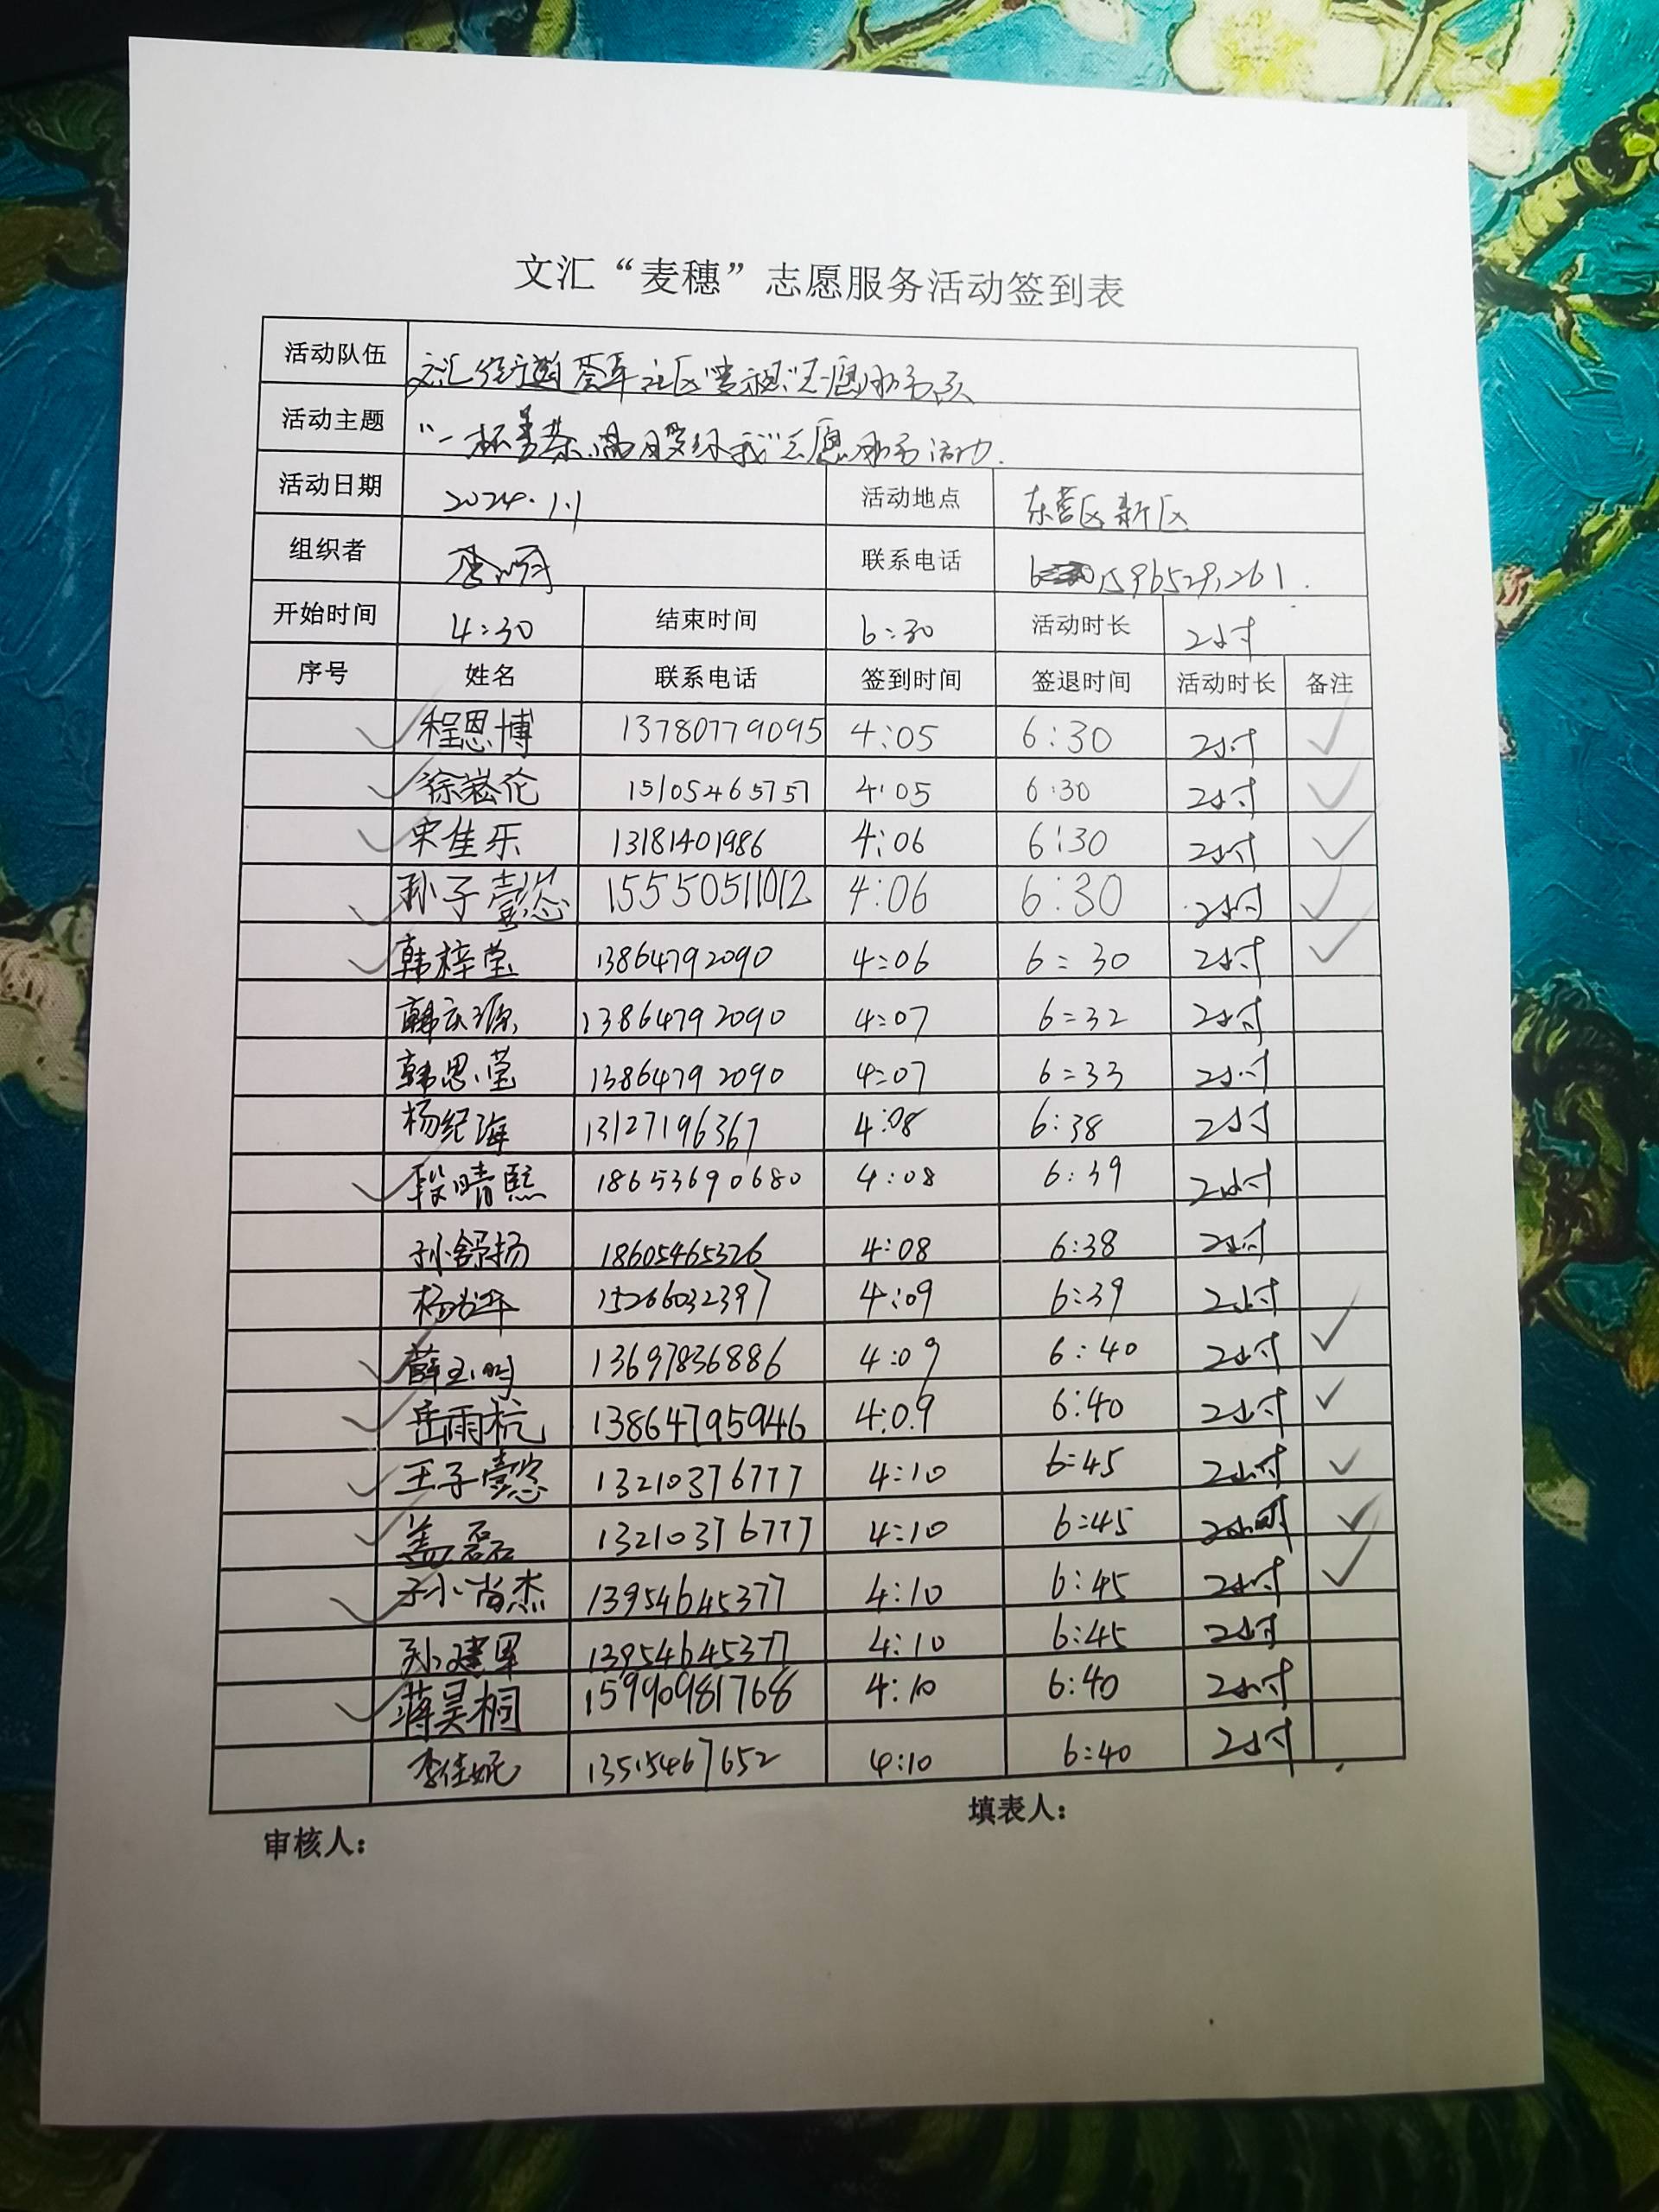 文汇“麦穗”志愿服务活动签到表
活动队伍 文汇街道 社区 志愿服务队
活动主题 “一杯 志愿服务活动.
活动日期 2024.1.1 活动地点 东营区新区
组织者 联系电话
开始时间 4:30 结束时间 6:30 活动时长 2小时
序号 姓名 联系电话 签到时间 签退时间 活动时长 备注
程恩博 13780779095 4:05 6:30 2小时 ✓
徐 伦 15105465757 4:05 6:30 2小时 ✓
宋佳乐 13181401986 4:06 6:30 2小时 ✓
孙子懿 15550511012 4:06 6:30 2小时 ✓
韩梓莹 13864792090 4:06 6:30 2小时 ✓
韩庆源 13864792090 4:07 6:32 2小时
韩思莹 13864792090 4:07 6:33 2小时
杨纪海 13127196367 4:08 6:38 2小时
段晴熙 18653690680 4:08 6:39 2小时
孙舒扬 18605465326 4:08 6:38 2小时
杨 15266032397 4:09 6:39 2小时
薛玉鸣 13697836886 4:09 6:40 2小时 ✓
岳雨杭 13864795946 4:09 6:40 2小时 ✓
王子懿 13210376777 4:10 6:45 2小时 ✓
盖磊 13210376777 4:10 6:45 2小时 ✓
孙尚杰 13954645377 4:10 6:45 2小时 ✓
孙建军 13954645377 4:10 6:45 2小时
蒋昊桐 15990981768 4:10 6:40 2小时
李佳妮 13515467652 4:10 6:40 2小时
审核人： 填表人：